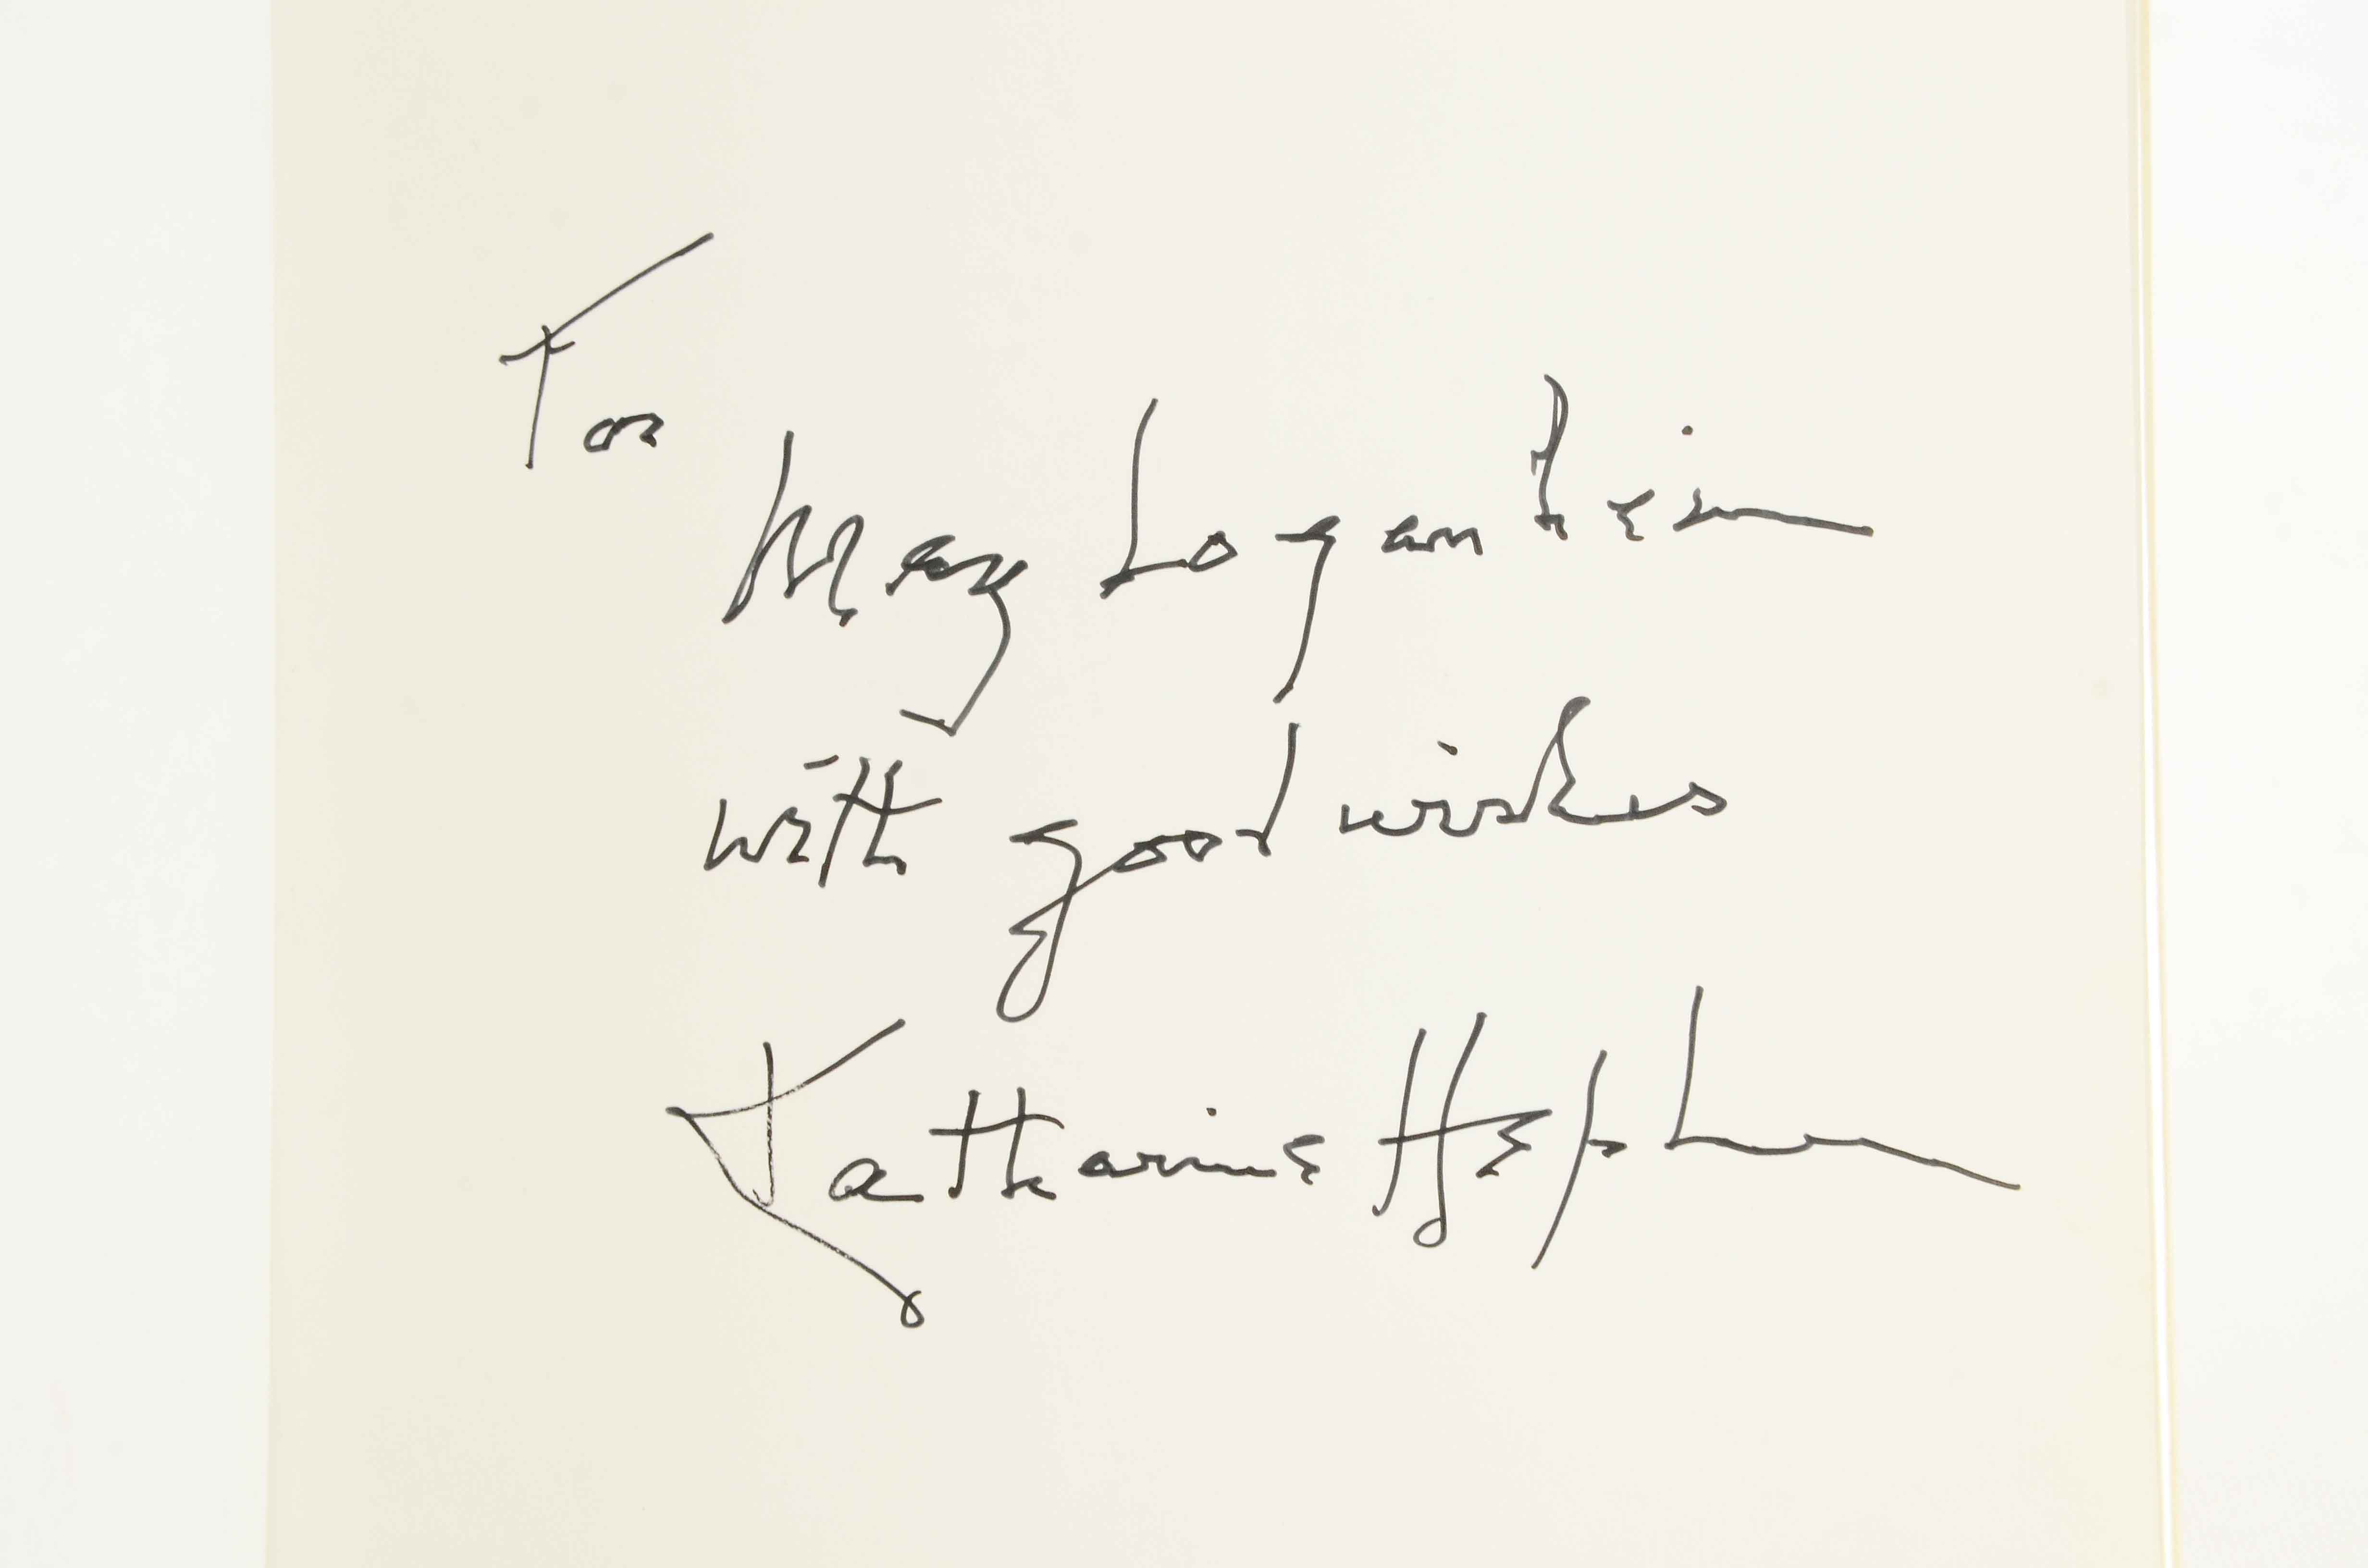 For
Mary Logan
with good wishes
Katharine Hepburn